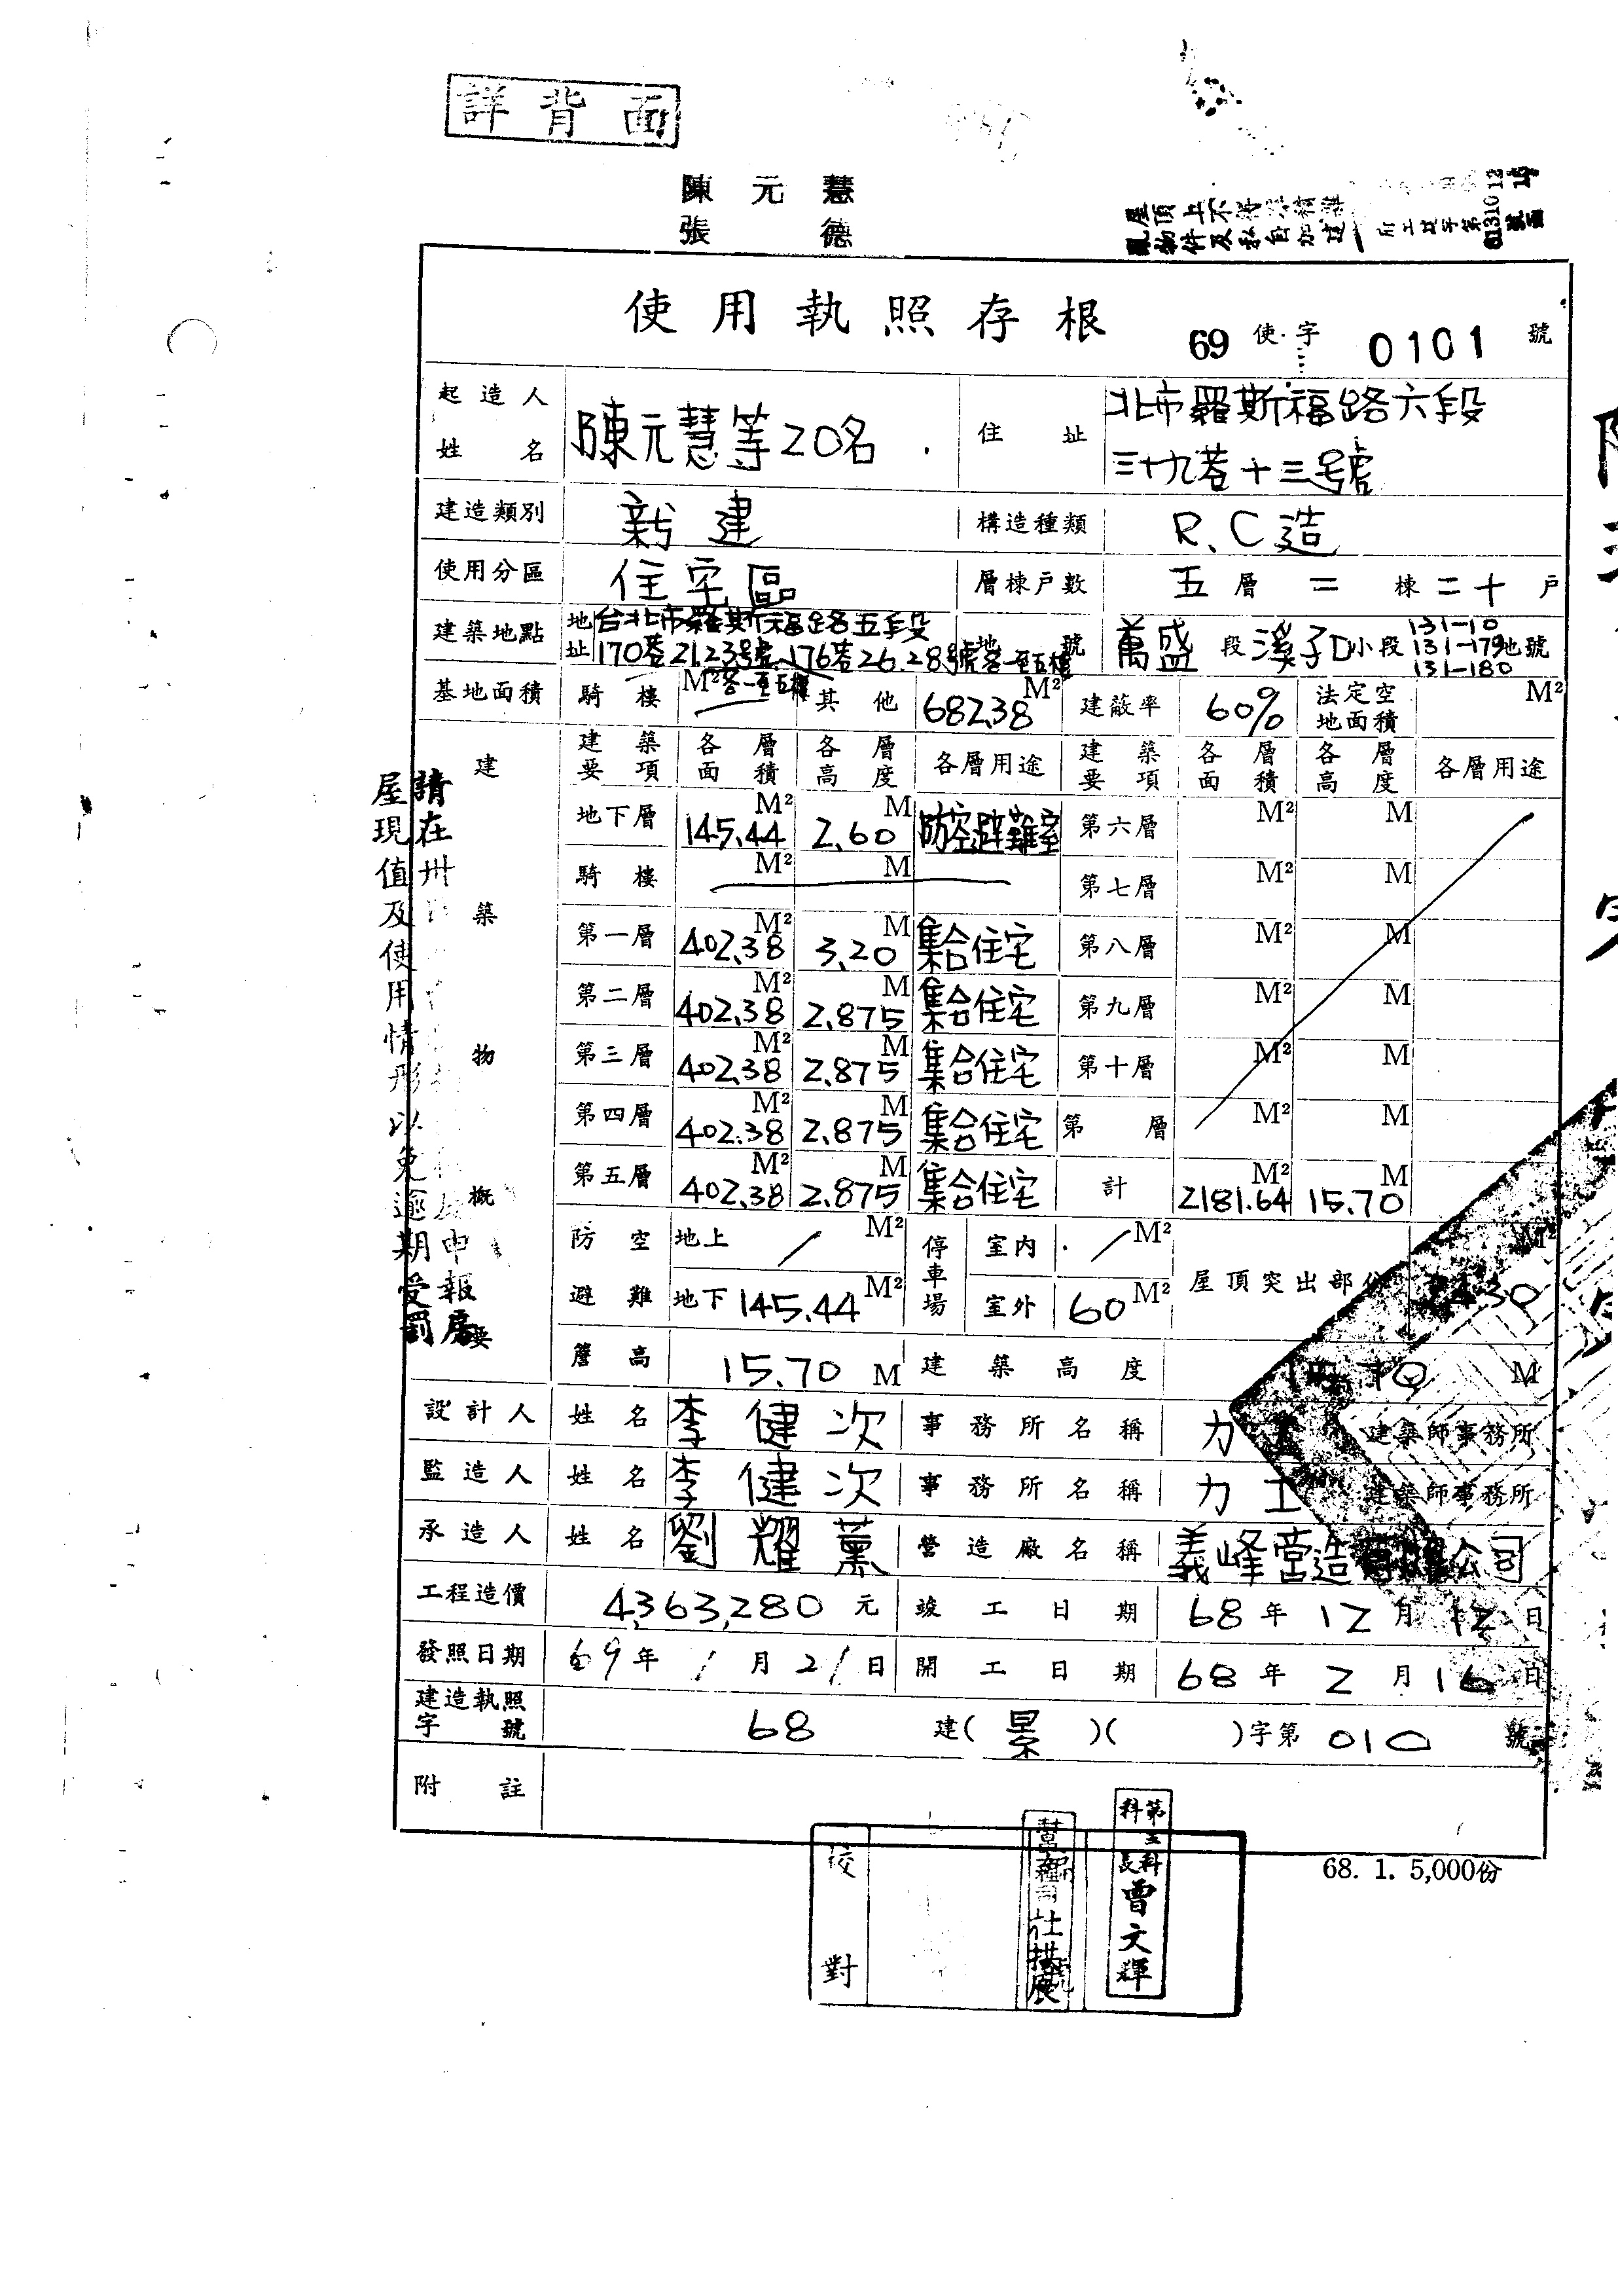 詳背面
陳元慧
張德
屋頂上不得
物件及私自加建
使用執照存根 69使字0101號
起造人姓名 陳元慧等20名 住址 北市羅斯福路六段三十九巷十三號
建造類別 新建 構造種類 R.C造
使用分區 住宅區 層棟戶數 五層二棟二十戶
建築地點 地址 台北市羅斯福路五段170巷21.23號、176巷26.28號各一至五樓 地號 萬盛段溪子口小段131-10 131-179 131-180地號
基地面積 騎樓 M² 其他 682.38M² 建蔽率 60% 法定空地面積 M²
建築物概要
建築要項 各層面積 各層高度 各層用途 建築要項 各層面積 各層高度 各層用途
地下層 145.44M² 2.60M 防空避難室 第六層 M² M
騎樓 M² M 第七層 M² M
第一層 402.38M² 3.20M 集合住宅 第八層 M² M
第二層 402.38M² 2.875M 集合住宅 第九層 M² M
第三層 402.38M² 2.875M 集合住宅 第十層 M² M
第四層 402.38M² 2.875M 集合住宅 第 層 M² M
第五層 402.38M² 2.875M 集合住宅 計 2181.64M² 15.70M
防空避難 地上 M² 停車場 室內 M² 屋頂突出部份 M²
地下 145.44M² 室外 60M²
簷高 15.70M 建築高度 M
設計人 姓名 李健次 事務所名稱 力 建築師事務所
監造人 姓名 李健次 事務所名稱 力工 建築師事務所
承造人 姓名 劉耀薰 營造廠名稱 義峰營造有限公司
工程造價 4,363,280元 竣工日期 68年12月12日
發照日期 69年1月21日 開工日期 68年2月16日
建造執照字號 68建(景)( )字第010號
附註
請在
屋現值及使用情形以免逾期受罰
申報房
68. 1. 5,000份
校對
第三科科長曾文輝